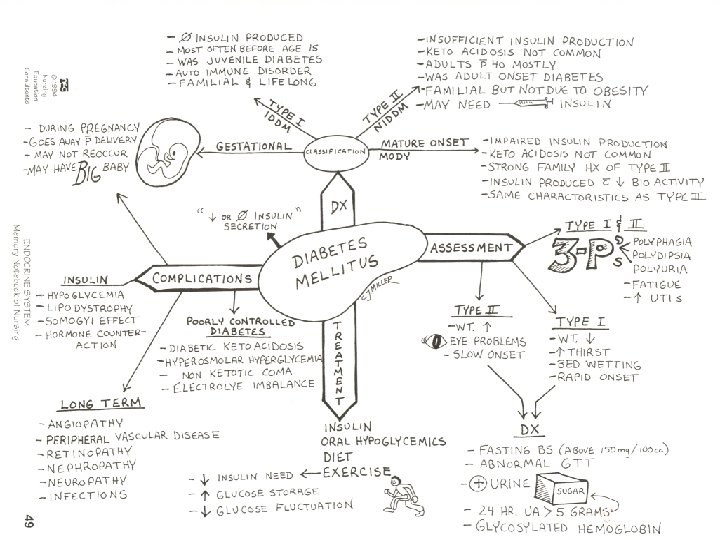 - Ø INSULIN PRODUCED
- MOST OFTEN BEFORE AGE 15
- WAS JUVENILE DIABETES
- AUTO IMMUNE DISORDER
- FAMILIAL & LIFELONG
- INSUFFICIENT INSULIN PRODUCTION
- KETO ACIDOSIS NOT COMMON
- ADULTS P̄ 40 MOSTLY
- WAS ADULT ONSET DIABETES
- FAMILIAL BUT NOT DUE TO OBESITY
- MAY NEED INSULIN
© 1994
Nursing
Education
Consultants
TYPE I
IDDM
TYPE II
NIDDM
- DURING PREGNANCY
- GOES AWAY P̄ DELIVERY
- MAY NOT REOCCUR
- MAY HAVE BIG BABY
GESTATIONAL
CLASSIFICATION
MATURE ONSET
MODY
- IMPAIRED INSULIN PRODUCTION
- KETO ACIDOSIS NOT COMMON
- STRONG FAMILY HX OF TYPE II
- INSULIN PRODUCED C̄ ↓ BIO ACTIVITY
- SAME CHARACTERISTICS AS TYPE II
DX
"↓ OR Ø INSULIN"
SECRETION
DIABETES
MELLITUS
CJMILLER
ASSESSMENT
TYPE I & II
3-P'S
POLYPHAGIA
POLYDIPSIA
POLYURIA
- FATIGUE
- ↑ UTIs
ENDOCRINE SYSTEM
Memory Notebook of Nursing
COMPLICATIONS
INSULIN
- HYPOGLYCEMIA
- LIPODYSTROPHY
- SOMOGYI EFFECT
- HORMONE COUNTER-
ACTION
POORLY CONTROLLED
DIABETES
- DIABETIC KETOACIDOSIS
- HYPEROSMOLAR HYPERGLYCEMIA
- NON KETOTIC COMA
- ELECTROLYE IMBALANCE
TREATMENT
TYPE II
- WT. ↑
EYE PROBLEMS
- SLOW ONSET
TYPE I
- WT. ↓
- ↑ THIRST
- BED WETTING
- RAPID ONSET
LONG TERM
- ANGIOPATHY
- PERIPHERAL VASCULAR DISEASE
- RETINOPATHY
- NEPHROPATHY
- NEUROPATHY
- INFECTIONS
INSULIN
ORAL HYPOGLYCEMICS
DIET
EXERCISE
- ↓ INSULIN NEED
- ↑ GLUCOSE STORAGE
- ↓ GLUCOSE FLUCTUATION
DX
- FASTING BS (ABOVE 150mg/100cc)
- ABNORMAL GTT
- + URINE
SUGAR
- 24 HR. UA > 5 GRAMS
- GLYCOSYLATED HEMOGLOBIN
49